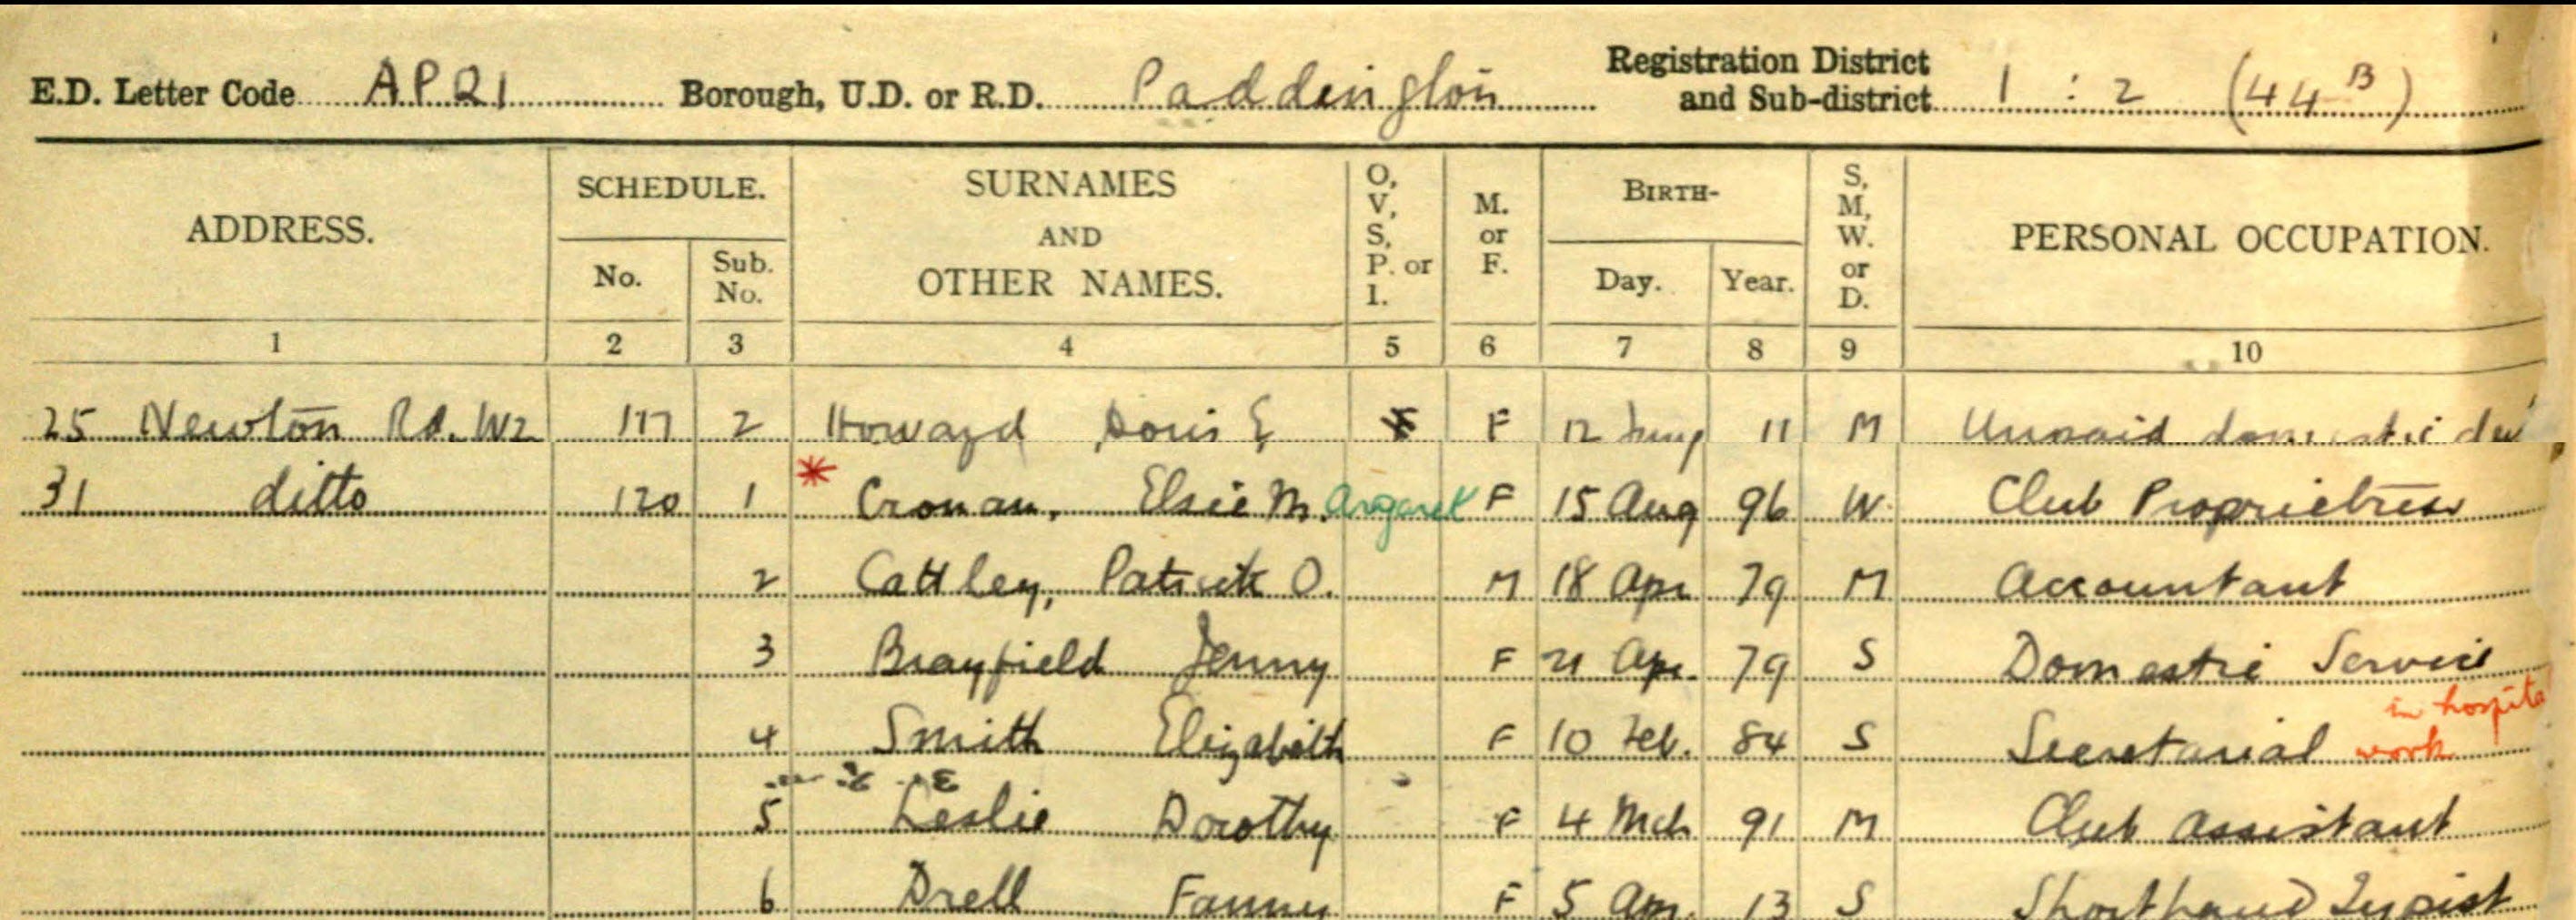 E.D. Letter Code APQ1 Borough, U.D. or R.D. Paddington Registration District and Sub-district 1 : 2 (44 B)
ADDRESS. SCHEDULE. No. Sub. No. SURNAMES AND OTHER NAMES. O, V, S, P. or I. M. or F. BIRTH- Day. Year. S, M, W. or D. PERSONAL OCCUPATION.
1 2 3 4 5 6 7 8 9 10
25 Newton Rd. W2 117 2 Howard Doris E F 12 11 M Unpaid domestic
31 ditto 120 1 * Cronan, Elsie Margaret F 15 Aug 96 W Club Proprietress
2 Cattley, Patrick O. M 18 Apr 79 M Accountant
3 Brayfield Jenny F 21 Apr. 79 S Domestic Service
4 Smith Elizabeth F 10 Feb. 84 S Secretarial work in hospita
5 Leslie Dorothy F 4 Mch 91 M Club Assistant
6 Drell Fanny F 5 Apr. 13 S Shorthand Typist